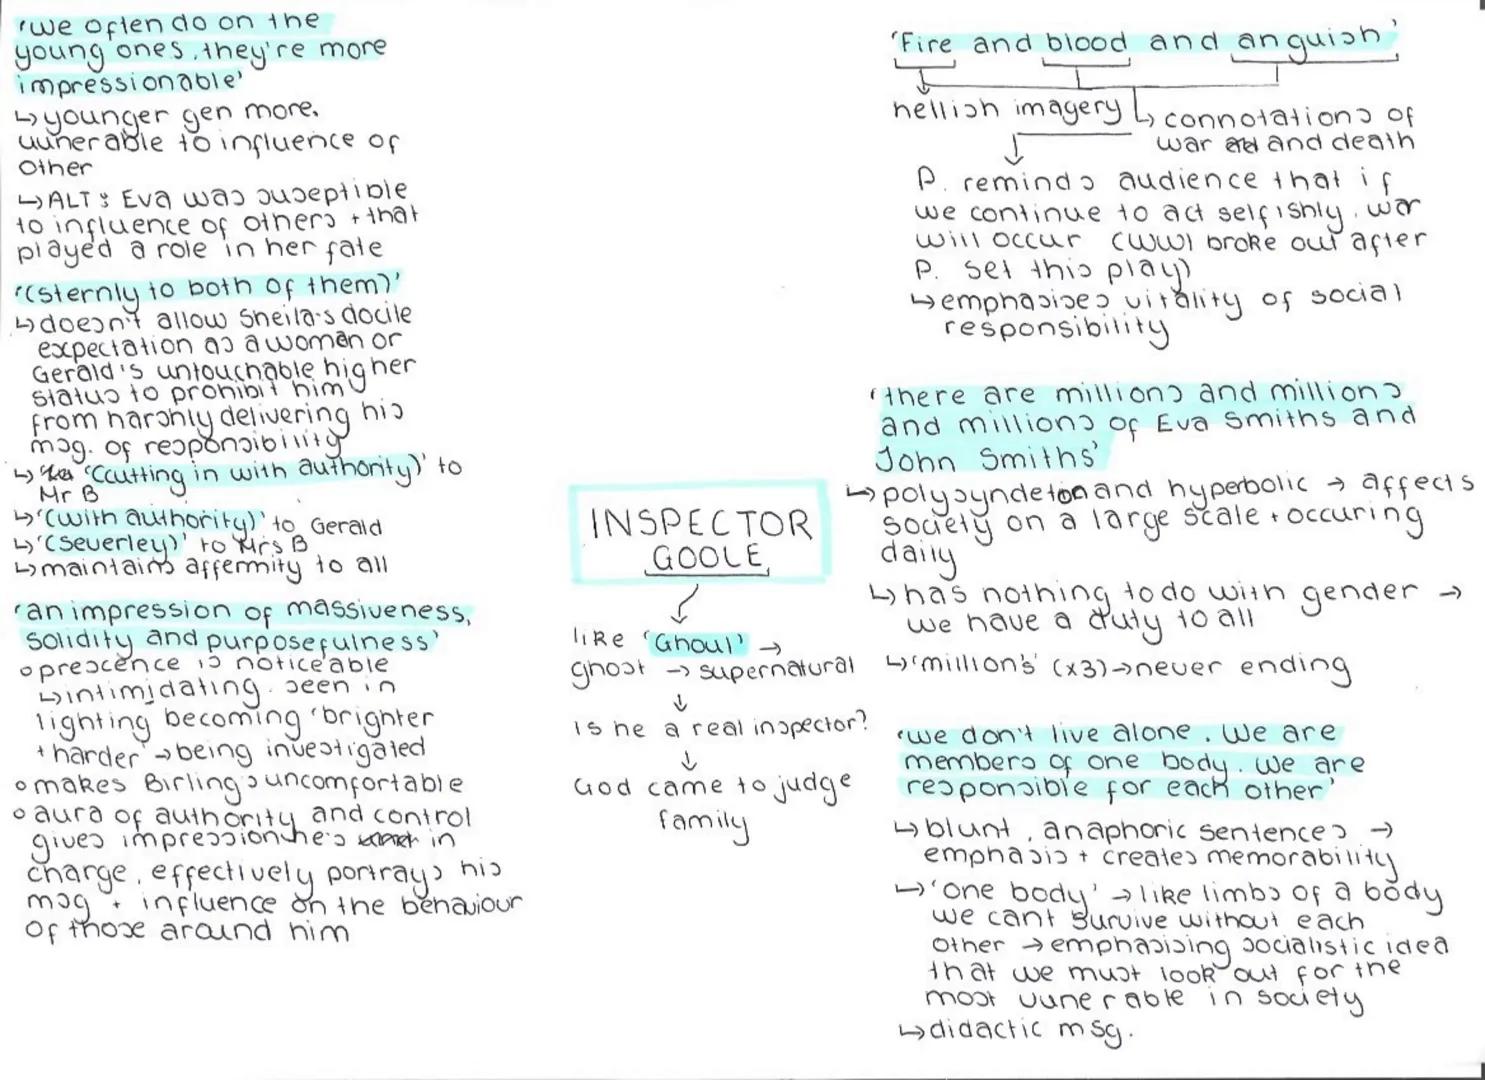 'we often do on the
young ones, they're more
impressionable'
↳ younger gen more.
vunerable to influence of
other
↳ ALT: Eva was suseptible
to influence of others + that
played a role in her fate
'(sternly to both of them)'
↳ doesn't allow Sheila's docile
expectation as a woman or
Gerald's untouchable higher
status to prohibit him
from harshly delivering his
msg. of responsibility
↳ '(cutting in with authority)' to
Mr B
↳ '(with authority)' to Gerald
↳ '(Severley)' to Mrs B
↳ maintains affermity to all
'an impression of massiveness,
solidity and purposefulness'
o prescence is noticeable
↳ intimidating. seen in
lighting becoming 'brighter
+ harder' → being investigated
o makes Birlings uncomfortable
o aura of authority and control
gives impression he's in
charge, effectively portrays his
msg + influence on the behaviour
of those around him
INSPECTOR
GOOLE
like 'Ghoul' →
ghost → supernatural
↓
Is he a real inspector?
↓
God came to judge
family
'Fire and blood and anguish'
hellish imagery ↳ connotations of
war and death
P. reminds audience that if
we continue to act selfishly, war
will occur (WW1 broke out after
P. set this play)
↳ emphasises vitality of social
responsibility
'there are millions and millions
and millions of Eva Smiths and
John Smiths'
↳ polysyndeton and hyperbolic → affects
society on a large scale + occuring
daily
↳ has nothing to do with gender →
we have a duty to all
↳ 'million's' (x3) → never ending
'we don't live alone. We are
members of one body. We are
responsible for each other'
↳ blunt, anaphoric sentences →
emphasis + creates memorability
↳ 'one body' → like limbs of a body
we cant survive without each
other → emphasising socialistic idea
that we must look out for the
most vunerable in society
↳ didactic msg.